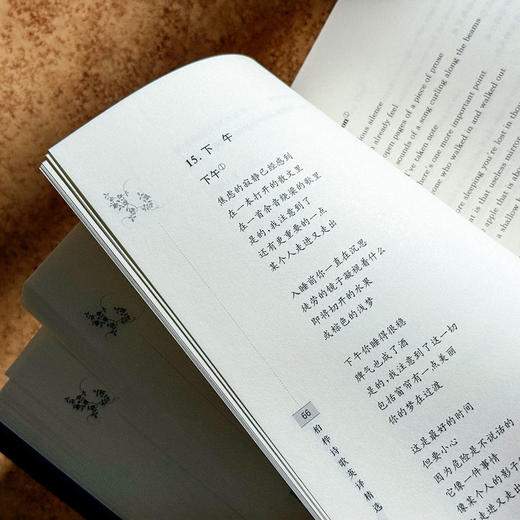 15.下 午
下午①
焦虑的寂静已经感到
在一本打开的散文里
在一首余音绕梁的歌里
是的,我注意到了
还有更重要的一点
某个人走进又走出
入睡前你一直在沉思
徒劳的镜子凝视着什么
即将切开的水果
或棕色的浅梦
下午你睡得很稳
脾气也成了酒
是的,我注意到了这一切
包括窗帘有一点美丽
你的梦在过渡
这是最好的时间
但要小心
因为危险是不说话的
它像一件事情
像某个人的影子
走进又走出
66
柏桦诗歌英译精选
on①
us silence
already feel
open pages of a piece of prose
sounds of a song curling along the beams
I've taken note
there's one more important point
one who walked in and walked out
re sleeping you're lost in thou
is that useless mirror
apple that is about
a shallow